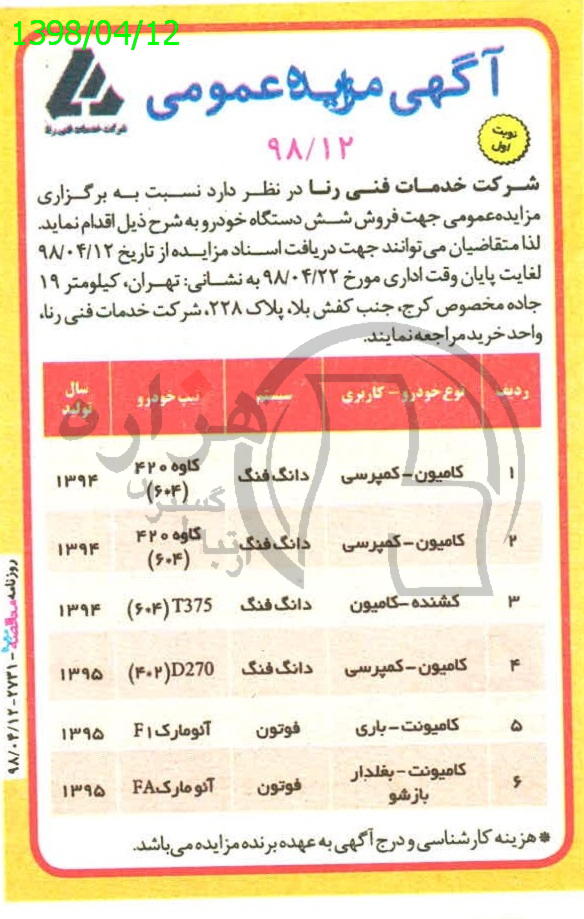 1398/04/12
آگهی مزایده عمومی
شرکت خدمات فنی رنا
نوبت
اول
۹۸/۱۲
شرکت خدمات فنی رنا در نظر دارد نسبت به برگزاری
مزایده‌عمومی جهت فروش شش دستگاه خودرو به شرح ذیل اقدام نماید.
لذا متقاضیان می‌توانند جهت دریافت اسناد مزایده از تاریخ ۹۸/۰۴/۱۲
لغایت پایان وقت اداری مورخ ۹۸/۰۴/۲۲ به نشانی: تهران، کیلومتر ۱۹
جاده مخصوص کرج، جنب کفش بلا، پلاک ۲۲۸، شرکت خدمات فنی رنا،
واحد خرید مراجعه نمایند.
ردیف نوع خودرو - کاربری سیستم تیپ خودرو سال تولید
۱ کامیون - کمپرسی دانگ فنگ کاوه ۴۲۰ (۶*۴) ۱۳۹۴
۲ کامیون - کمپرسی دانگ فنگ کاوه ۴۲۰ (۶*۴) ۱۳۹۴
۳ کشنده - کامیون دانگ فنگ T375 (۶*۴) ۱۳۹۴
۴ کامیون - کمپرسی دانگ فنگ D270 (۴*۲) ۱۳۹۵
۵ کامیونت - باری فوتون آئومارک F۱ ۱۳۹۵
۶ کامیونت - بغلدار بازشو فوتون آئومارک FA ۱۳۹۵
* هزینه کارشناسی و درج آگهی به عهده برنده مزایده می‌باشد.
روزنامه مناقصه مزایده - ۲۷۳۱ - ۹۸/۰۴/۱۲
هزاره
گستر